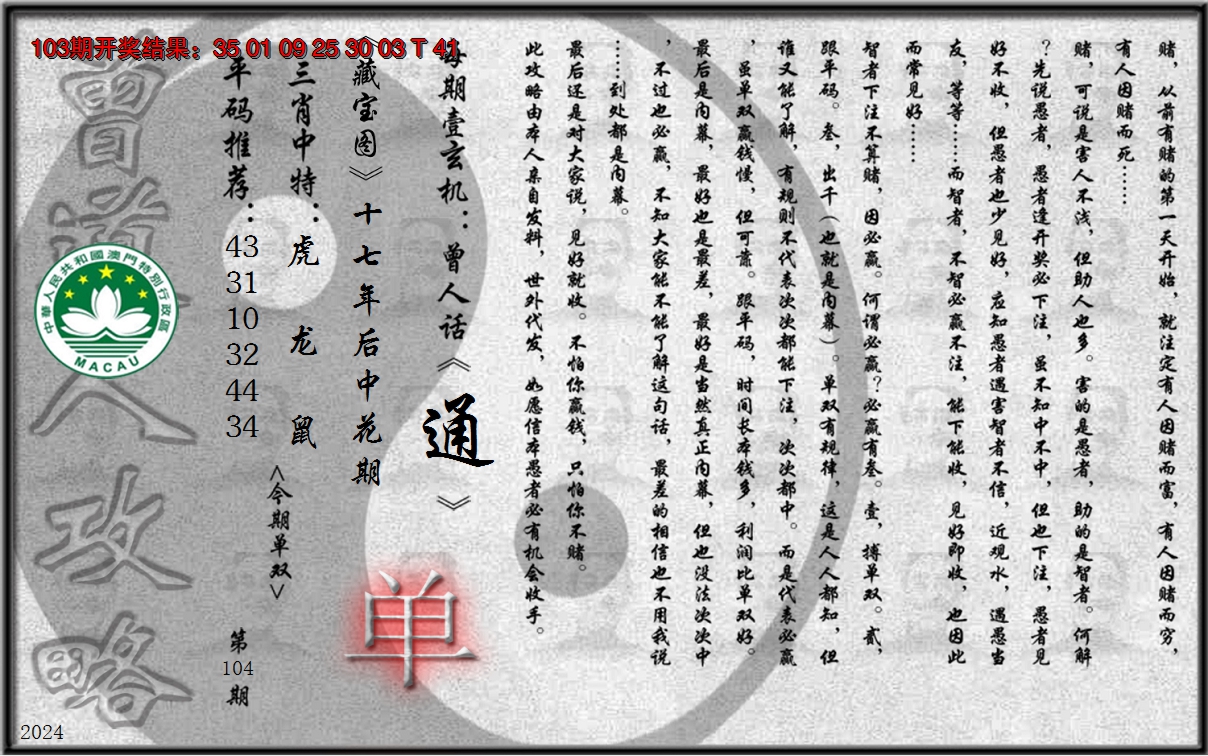 103期开奖结果：35 01 09 25 30 03 T 41
赌，从前有赌的第一天开始，就注定有人因赌而富，有人因赌而穷，
有人因赌而死……
赌，可说是害人不浅，但助人也多。害的是愚者，助的是智者。何解
？先说愚者，愚者逢开奖必下注，虽不知中不中，但也下注，愚者见
好不收，但愚者也少见好，应知愚者遇害智者不信，近观水，遇愚当
友，等等……而智者，不智必赢不注，能下能收，见好即收，也因此
而常见好……
智者下注不算赌，因必赢。何谓必赢？必赢有叁。壹，搏单双。贰，
跟平码。叁，出千（也就是内幕）。单双有规律，这是人人都知，但
谁又能了解，有规则不代表次次都能下注，次次都中。而是代表必赢
，虽单双赢钱慢，但可靠。跟平码，时间长本钱多，利润比单双好。
最后是内幕，最好也是最差，最好是当然真正内幕，但也没法次次中
，不过也必赢，不知大家能不能了解这句话，最差的相信也不用我说
……到处都是内幕。
最后还是对大家说，见好就收。不怕你赢钱，只怕你不赌。
此攻略由本人亲自发料，世外代发，如愿信本愚者必有机会收手。
每期壹玄机：曾人话《通》
《藏宝图》十七年后中花期
单
三肖中特：虎 龙 鼠
<今期单双>
平码推荐：
43
31
10
32
44
34
第
104
期
曾道人攻略
中華人民共和國澳門特別行政區
MACAU
2024